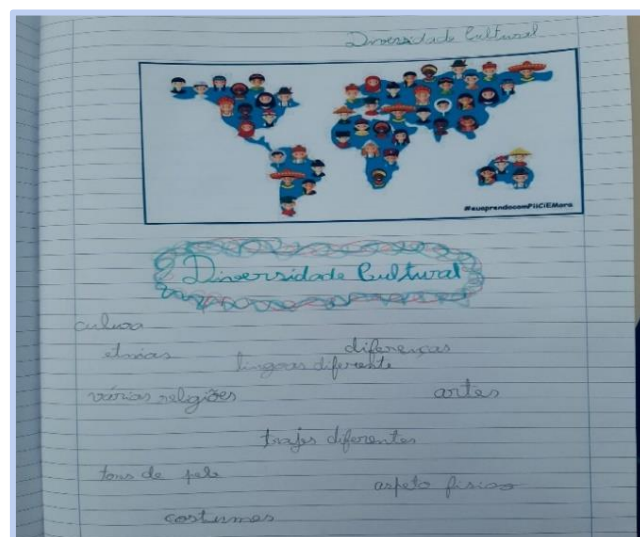 Diversidade Cultural
#euaprendocomPIICIEMora
Diversidade Cultural
cultura
etnias
diferenças
línguas diferente
várias religiões
artes
trajes diferentes
tons de pele
aspeto físico
costumes